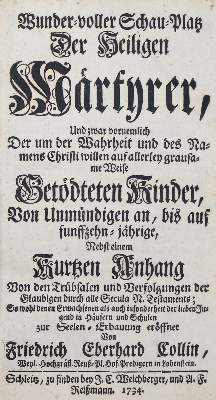 Wunder-voller Schau-Platz
Der Heiligen
Märtyrer,
Und zwar vornemlich
Der um der Wahrheit und des Na-
mens Christi willen auf allerley grausa-
me Weise
Getödteten Kinder,
Von Unmündigen an, bis auf
funffzehn-jährige,
Nebst einem
Kurtzen Anhang
Von den Trübsalen und Verfolgungen der
Glaubigen durch alle Secula N. Testaments;
So wohl denen Erwachsenen als auch insonderheit der lieben Ju-
gend in Häusern und Schulen
zur Seelen-Erbauung eröffnet
Von
Friedrich Eberhard Collin,
Weyl. Hochgräfl. Reuß-Pl. Hof-Predigern in Lobenstein.
Schleitz, zu finden bey J. C. Weichberger, und A. F.
Reißmann. 1734.